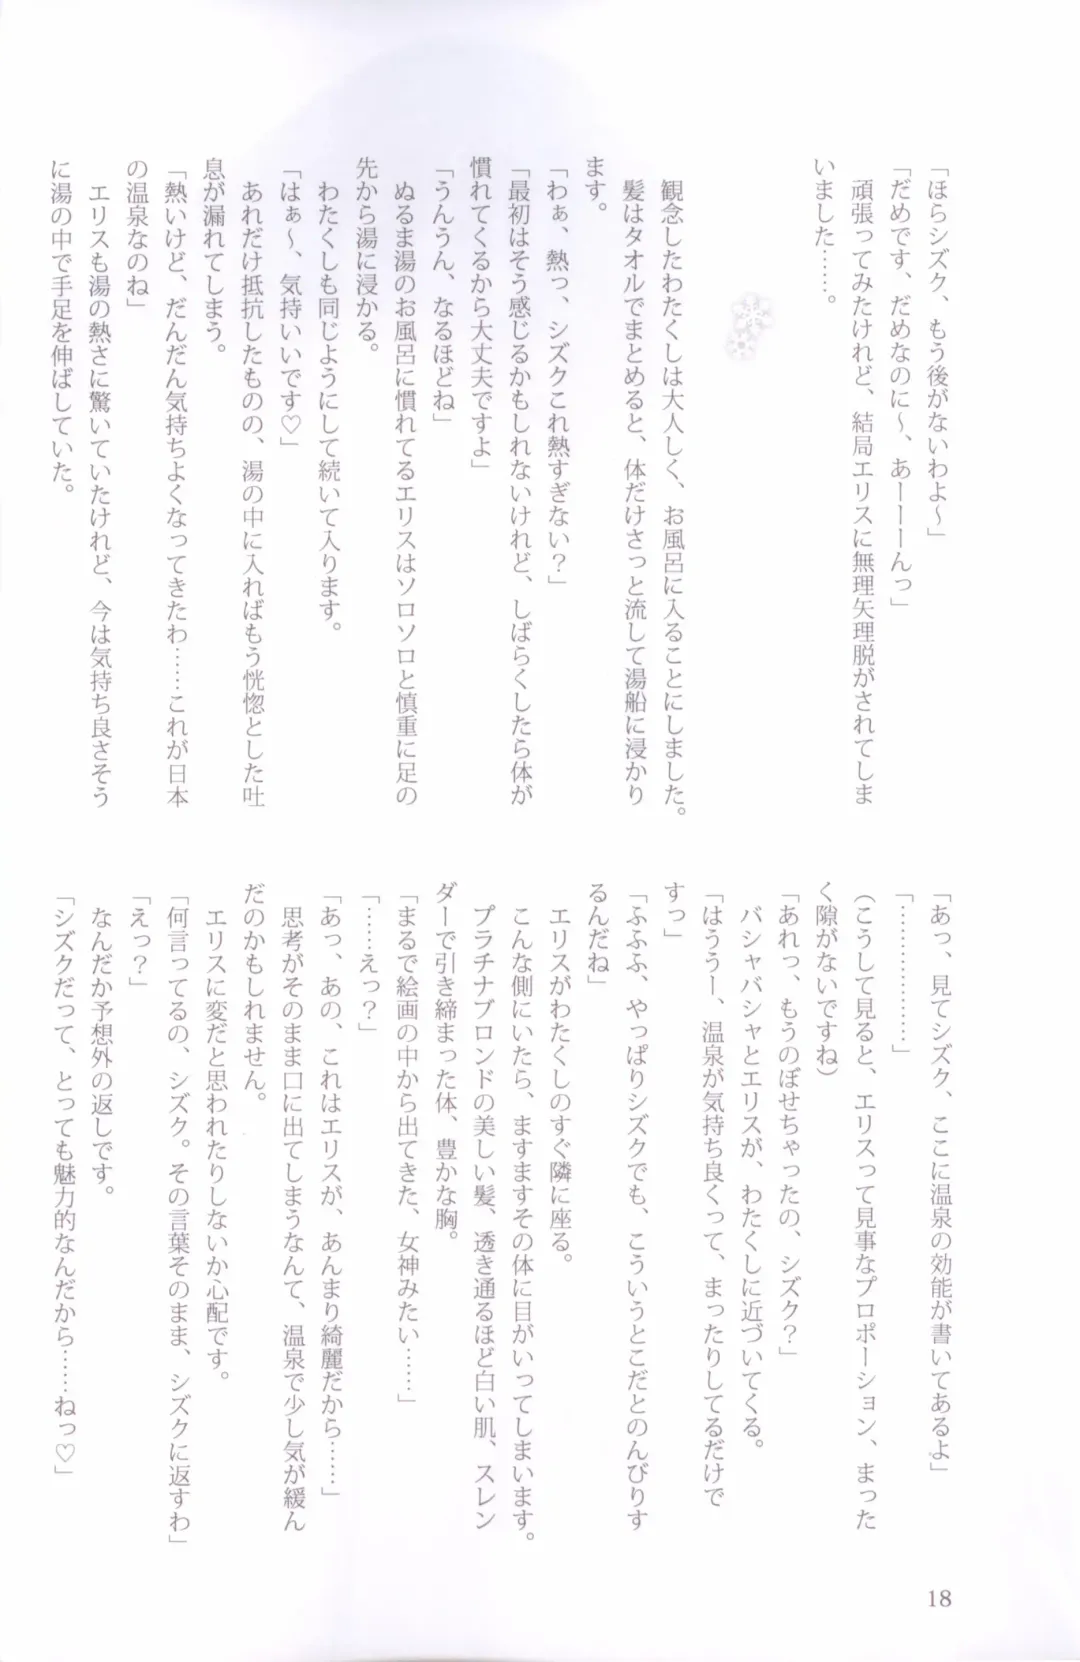 「ほらシズク、もう後がないわよ〜」
「だめです、だめなのに〜、あーーーんっ」
頑張ってみたけれど、結局エリスに無理矢理脱がされてしま
いました……。
観念したわたくしは大人しく、お風呂に入ることにしました。
髪はタオルでまとめると、体だけさっと流して湯船に浸かり
ます。
「わぁ、熱っ、シズクこれ熱すぎない？」
「最初はそう感じるかもしれないけれど、しばらくしたら体が
慣れてくるから大丈夫ですよ」
「うんうん、なるほどね」
ぬるま湯のお風呂に慣れてるエリスはソロソロと慎重に足の
先から湯に浸かる。
わたくしも同じようにして続いて入ります。
「はぁ〜、気持いいです♡」
あれだけ抵抗したものの、湯の中に入ればもう恍惚とした吐
息が漏れてしまう。
「熱いけど、だんだん気持ちよくなってきたわ……これが日本
の温泉なのね」
エリスも湯の熱さに驚いていたけれど、今は気持ち良さそう
に湯の中で手足を伸ばしていた。
「あっ、見てシズク、ここに温泉の効能が書いてあるよ」
「………………」
(こうして見ると、エリスって見事なプロポーション、まった
く隙がないですね)
「あれっ、もうのぼせちゃったの、シズク？」
バシャバシャとエリスが、わたくしに近づいてくる。
「はううー、温泉が気持ち良くって、まったりしてるだけで
すっ」
「ふふふ、やっぱりシズクでも、こういうとこだとのんびりす
るんだね」
エリスがわたくしのすぐ隣に座る。
こんな側にいたら、ますますその体に目がいってしまいます。
プラチナブロンドの美しい髪、透き通るほど白い肌、スレン
ダーで引き締まった体、豊かな胸。
「まるで絵画の中から出てきた、女神みたい……」
「……えっ？」
「あっ、あの、これはエリスが、あんまり綺麗だから……」
思考がそのまま口に出てしまうなんて、温泉で少し気が緩ん
だのかもしれません。
エリスに変だと思われたりしないか心配です。
「何言ってるの、シズク。その言葉そのまま、シズクに返すわ」
「えっ？」
なんだか予想外の返しです。
「シズクだって、とっても魅力的なんだから……ねっ♡」
18